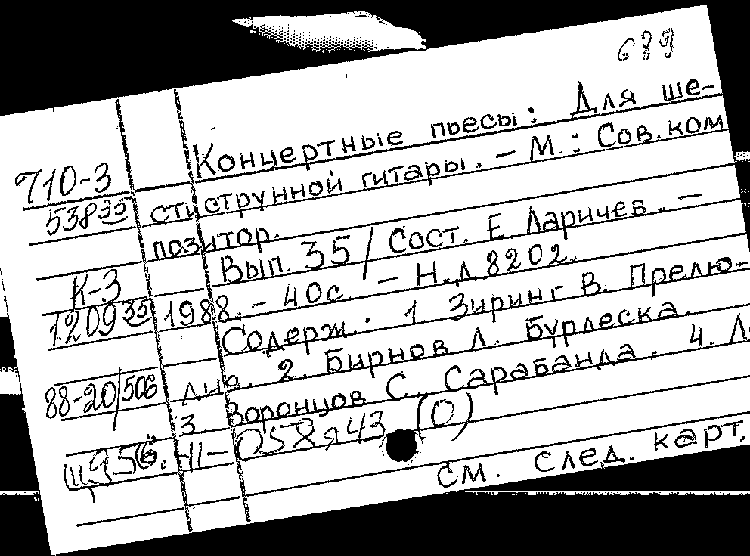 689
Концертные пьесы: Для ше-
710-3
стиструнной гитары. – М.: Сов. ком
538 35
позитор.
Вып. 35 / Сост. Е. Ларичев. –
К-3
1988. – 40с. – Н.д. 8202.
1209 35
Содерж.: 1 Зиринг В. Прелю-
дия. 2. Бирнов Л. Бурлеска.
88-20/506
3 Воронцов С. Сарабанда. 4. Л
Щ956.41-058я43 (0)
см. след. карт.